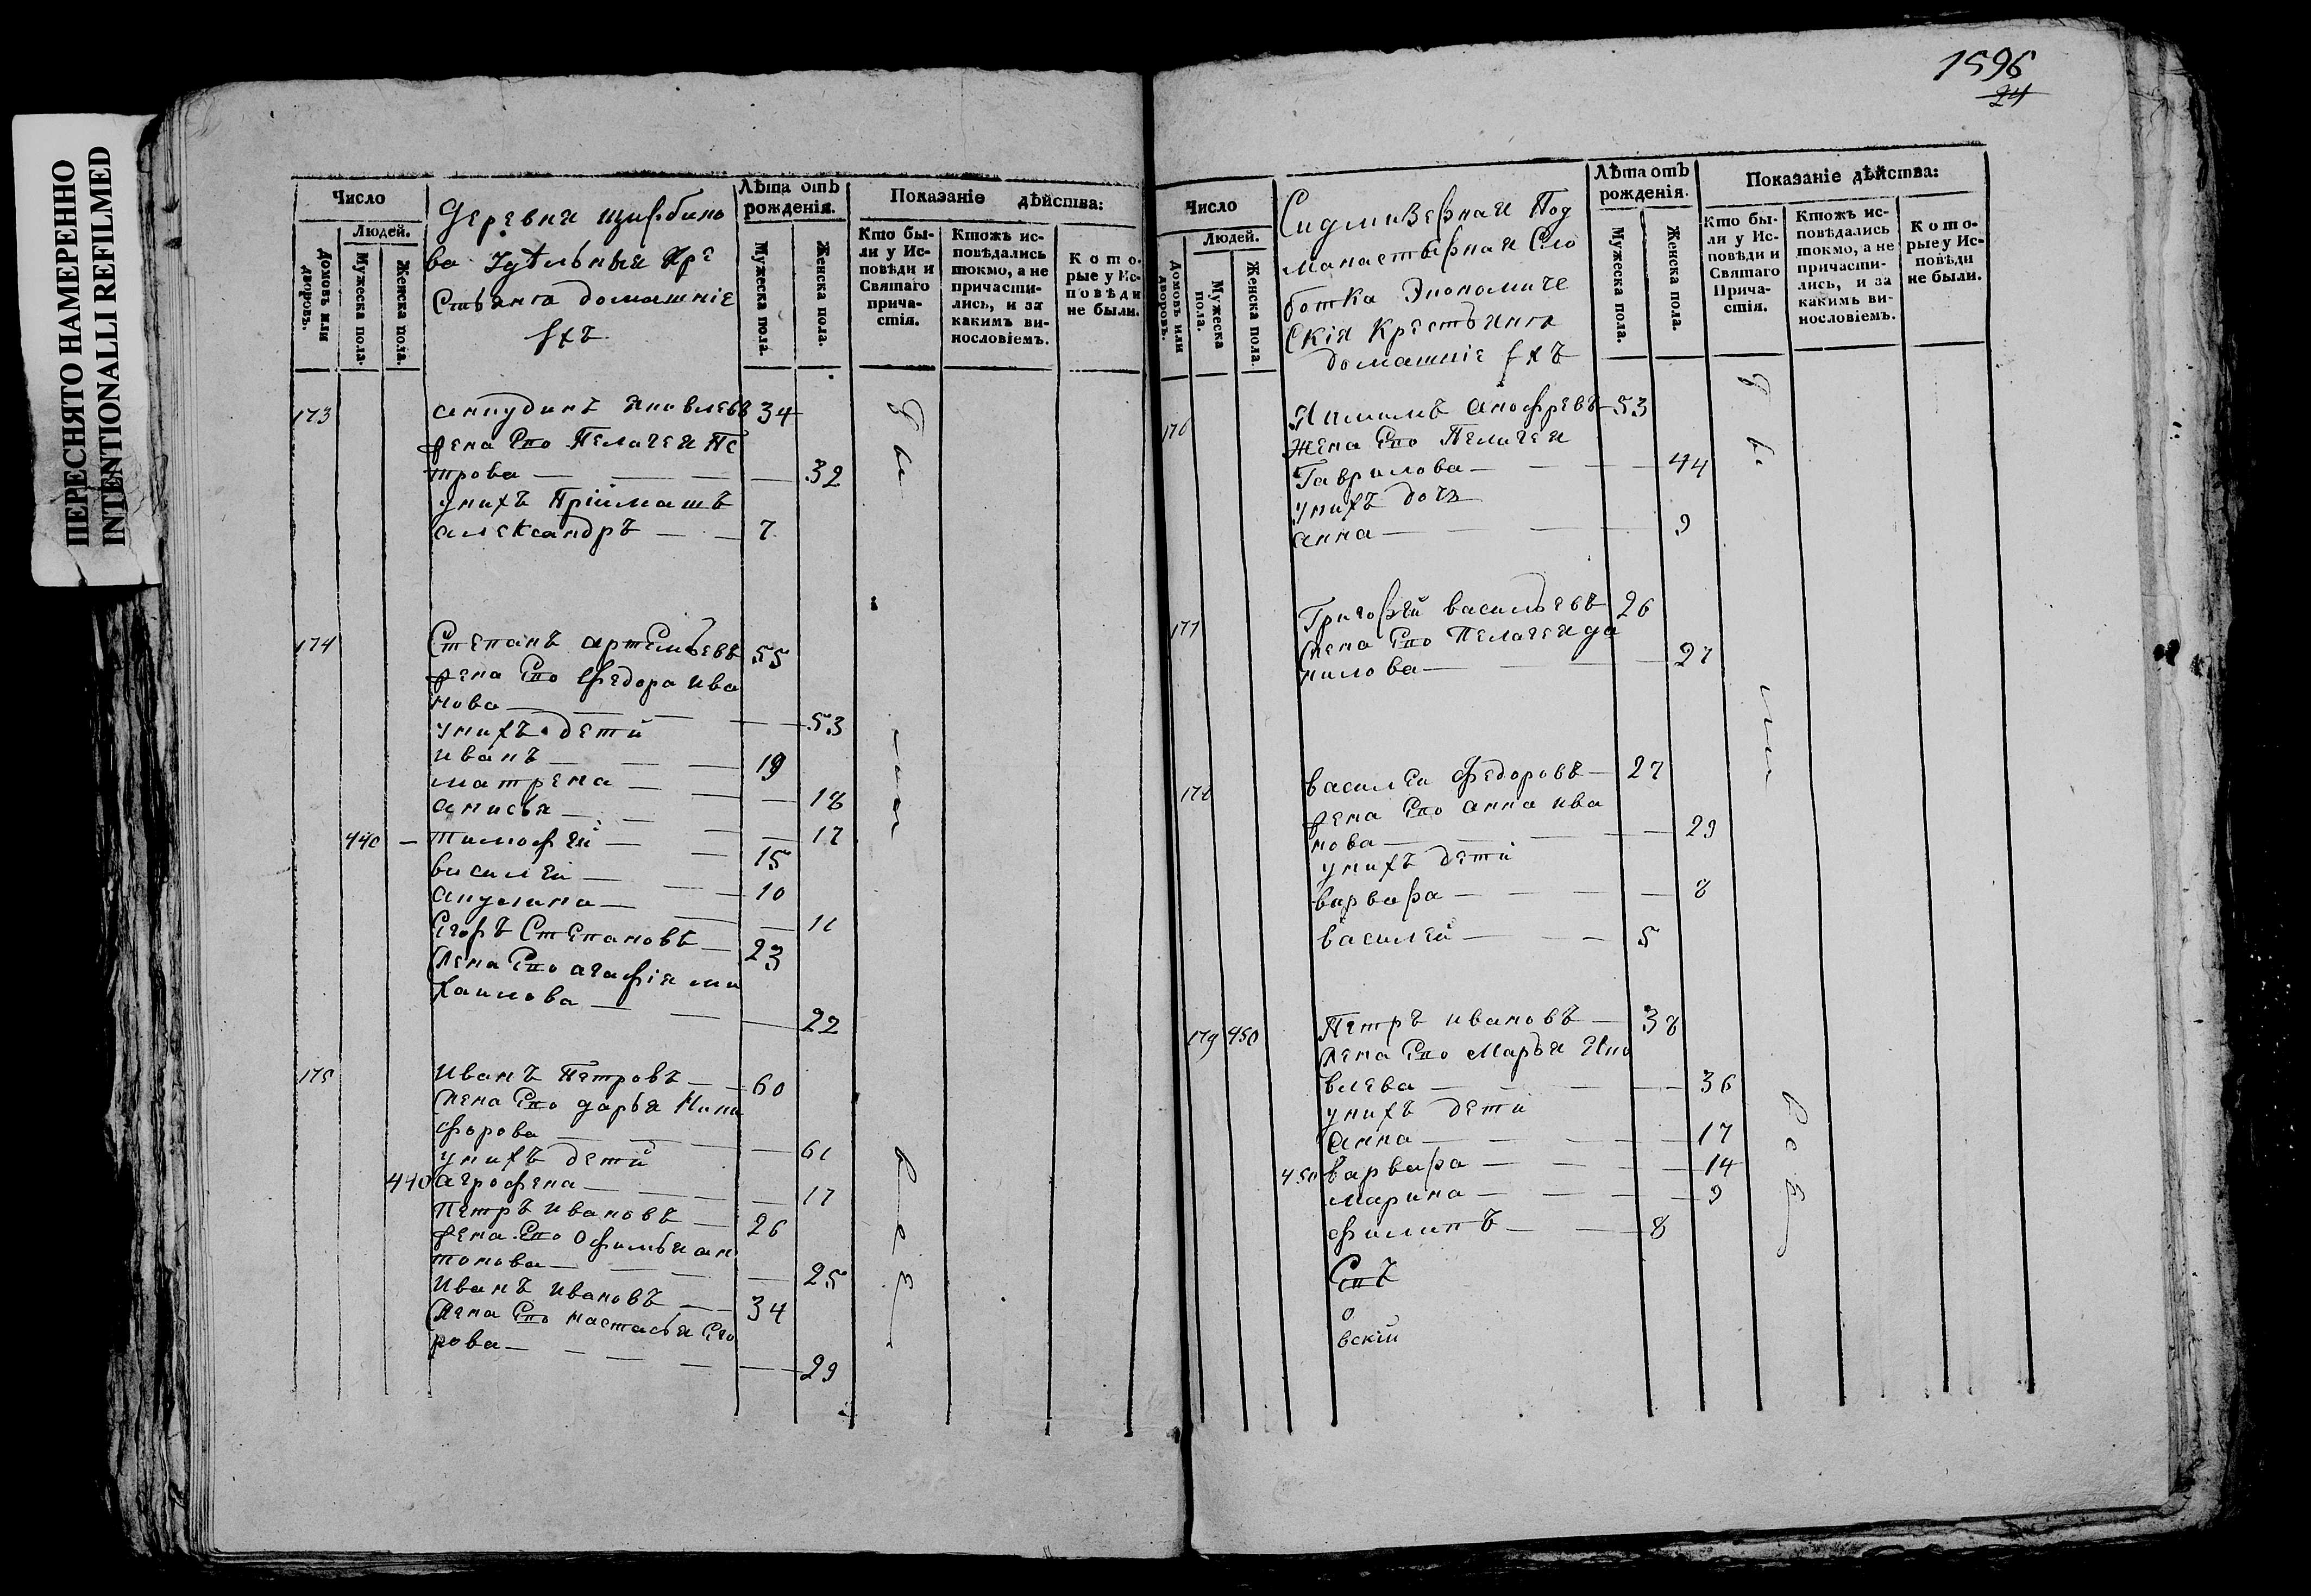 ПЕРЕСНЯТО НАМЕРЕННО
INTENTIONALLI REFILMED
Число
Людей.
Домовъ или дворовъ.
Мужеска пола.
Женска пола.
Деревня щербино
ва удѣльныя кре
стьяня домашніе
ѣхъ
Лѣта отъ рожденія.
Мужеска пола.
Женска пола.
Показаніе дѣйства:
Кто бы-
ли у Ис-
повѣди и
Святаго
прича-
стія.
Ктожъ ис-
повѣдались
токмо, а не
причасти-
лись, и за
какимъ ви-
нословіемъ.
Кото-
рые у Ис-
повѣди
не были.
173 анкудинъ яковлевъ 34
жена его Пелагея Пе
трова — 32
унихъ Пріймашъ
александръ — 7
174 Степанъ артемьевъ 55
жена его федора ива
нова — 53
унихъ дети
иванъ — 19
матрена — 18
анисья — 17
440 — тимофей — 15
василей — 10
акулина — 11
Егоръ Степановъ — 23
жена его агафія ми
хаилова — 22
175 иванъ Петровъ — 60
жена его дарья Ники
форова — 61
унихъ дети
440 аграфена — 17
Петръ ивановъ — 26
жена его офимья ан
тонова — 25
Иванъ ивановъ — 34
жена его настасья Его
рова — 29
1596
24
Число
Людей.
Домовъ или дворовъ.
Мужеска пола.
Женска пола.
Под
манастырная Сло
ботка Экономиче
скія крестьяня
домашніе ѣхъ
Лѣта отъ рожденія.
Мужеска пола.
Женска пола.
Показаніе дѣйства:
Кто бы-
ли у Ис-
повѣди и
Святаго
Прича-
стія.
Ктожъ ис-
повѣдались
токмо, а не
причасти-
лись, и за
какимъ ви-
нословіемъ.
Кото-
рые у Ис-
повѣди
не были.
176 анофревъ — 53
Жена его Пелагея
Гаврилова — 44
унихъ дочь
анна — 9
177 Григорей васильевъ 26
жена его Пелагея да
нилова — 27
178 василеи федоровъ — 27
жена его анна ива
нова — 29
унихъ дети
варвара — 8
василей — 5
179 450 Петръ ивановъ — 38
жена его Марья Яко
влева — 36
унихъ дети
анна — 17
450 варвара — 14
марина — 9
филипъ — 8
вскій